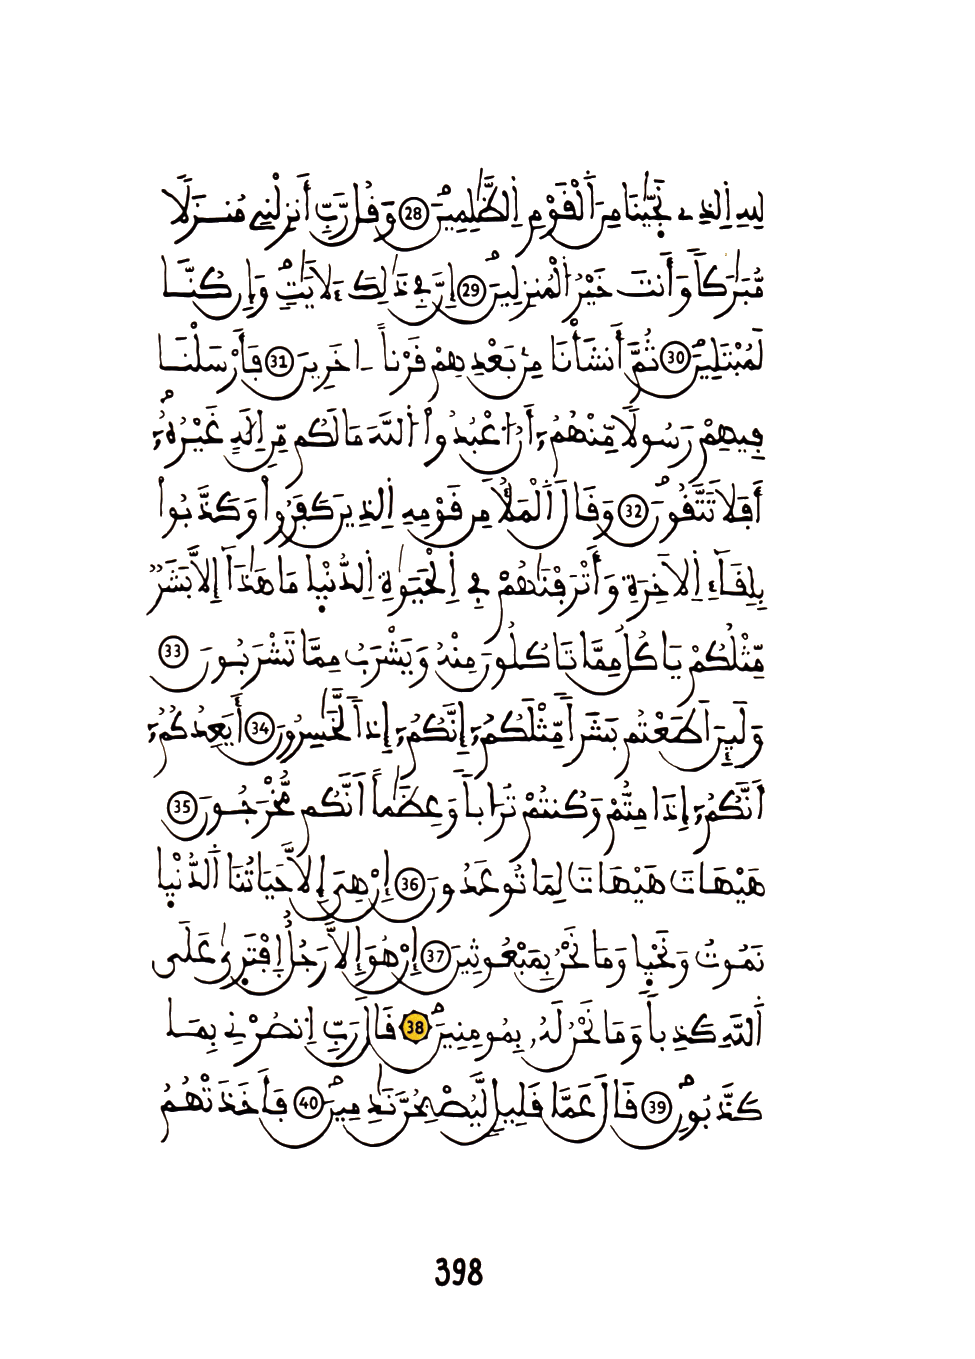 لِلهِ اِ۬لذِے نَجّ۪يٰنَا مِنَ اَ۬لْقَوْمِ اِ۬لظَّٰلِمِينَۖ 28 وَقُل رَّبِّ أَنزِلْنِے مُنزَلاٗ
مُّبَٰرَكاٗ وَأَنتَ خَيْرُ اُ۬لْمُنزِلِينَۖ 29 إِنَّ فِے ذَٰلِكَ ءَلَايَٰتٖۖ وَإِن كُنَّا
لَمُبْتَلِينَۖ 30 ثُمَّ أَنشَأْنَا مِنۢ بَعْدِهِمْ قَرْناً ـ اخَرِينَ 31 فَأَرْسَلْنَا
فِيهِمْ رَسُولاٗ مِّنْهُمُۥٓ أَنُ اُ۟عْبُدُواْ اُ۬للَّهَ مَا لَكُم مِّنِ اِلَٰهٍ غَيْرُهُۥٓۖ
أَفَلَا تَتَّقُونَۖ 32 وَقَالَ اَ۬لْمَلَأُ مِن قَوْمِهِ اِ۬لذِينَ كَفَرُواْ وَكَذَّبُواْ
بِلِقَآءِ اِ۬لَاخِرَةِ وَأَتْرَفْنَٰهُمْ فِے اِ۬لْحَيَوٰةِ اِ۬لدُّنْي۪ا مَا هَٰذَآ إِلَّا بَشَرٞ
مِّثْلُكُمْ يَاكُلُ مِمَّا تَاكُلُونَ مِنْهُ وَيَشْرَبُ مِمَّا تَشْرَبُونَ 33
وَلَئِنَ اَطَعْتُم بَشَراٗ مِّثْلَكُمُۥٓ إِنَّكُمُۥٓ إِذاٗ لَّخَٰسِرُونَ 34 أَيَعِدُكُمُۥٓ
أَنَّكُمُۥٓ إِذَا مِتُّمْ وَكُنتُمْ تُرَاباٗ وَعِظَٰماً اَنَّكُم مُّخْرَجُونَ 35
هَيْهَاتَ هَيْهَاتَ لِمَا تُوعَدُونَ 36 إِنْ هِىَ إِلَّا حَيَاتُنَا اَ۬لدُّنْي۪ا
نَمُوتُ وَنَحْي۪ا وَمَا نَحْنُ بِمَبْعُوثِينَ 37 إِنْ هُوَ إِلَّا رَجُلٌ اِ۪فْتَر۪يٰ عَلَى
اَ۬للَّهِ كَذِباٗ وَمَا نَحْنُ لَهُۥ بِمُومِنِينَۖ 38 قَالَ رَبِّ اِ۟نصُرْنِے بِمَا
كَذَّبُونِۖ 39 قَالَ عَمَّا قَلِيلٖ لَّيُصْبِحُنَّ نَٰدِمِينَۖ 40 فَأَخَذَتْهُمُ
398